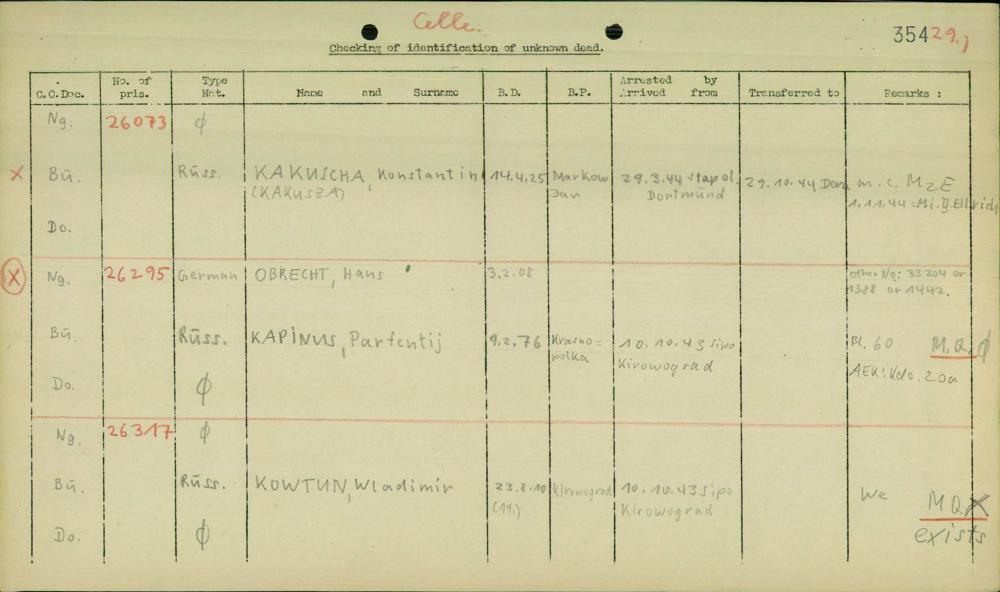 Celle.
354 29.)
Checking of identification of unknown dead.
C.C.Doc. No. of pris. Type Nat. Name and Surname B.D. B.P. Arrested by Arrived from Transferred to Remarks :
Ng. 26073 ϕ
x Bü. Rüss. KAKUSCHA, Konstantin 14.4.25 Markow 29.3.44 Stapol. 29.10.44 Dora m.c. MzE
(KAKUSZA) Dortmünd 1.11.44 = Mi.
Do.
x Ng. 26295 German OBRECHT, Hans 3.2.08 other Ng: 33204 or
1388 or 1442.
Bü. Rüss. KAPINUS, Parfentij 9.2.76 Krasno= 10.10.43 Sipo Bl. 60 M.Q. ϕ
polka Kirowograd
Do. ϕ AEK: Kdo. 20a
Ng. 26317 ϕ
Bü. Rüss. KOWTUN, Wladimir 23.8.10 Kirowograd 10.10.43 Sipo We M.Q.X
(14.) Kirowograd
Do. ϕ exists